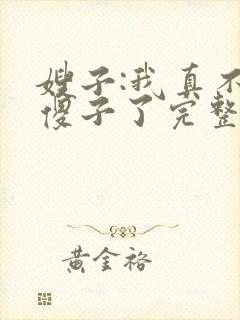 嫂子:我真不
傻子了完整
黄金裕